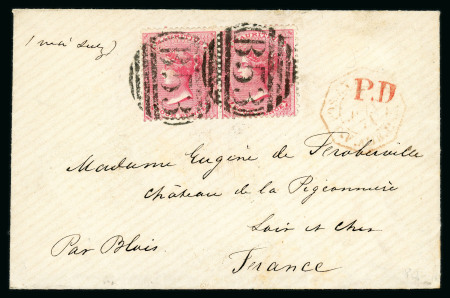 (via Suez)
B53
B53
P.D
Madame Eugène de Froberville
Château de la Pigeonnière
Loir et Cher
Par Blois.
France